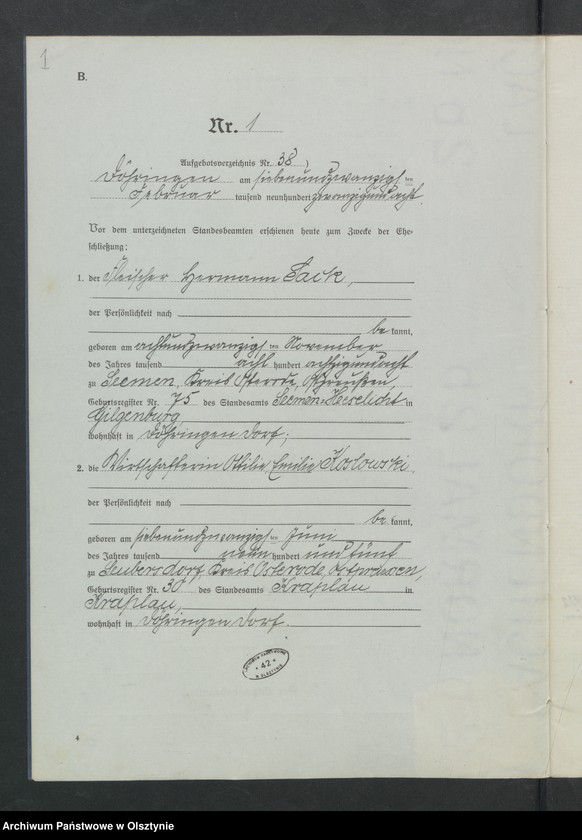 1
B.
Nr. 1
Aufgebotsverzeichnis Nr. 38)
Döhringen am siebenundzwanzigsten
Februar tausend neunhundert zwanzigundacht.
Vor dem unterzeichneten Standesbeamten erschienen heute zum Zwecke der Ehe-
schließung:
1. der Fleischer Hermann Sack,
der Persönlichkeit nach
be kannt,
geboren am achtundzwanzigsten November
des Jahres tausend acht hundert achtzigundacht
zu Seemen, Kreis Osterode, Ostpreußen,
Geburtsregister Nr. 75 des Standesamts Seemen-Heeselicht in
Gilgenburg
wohnhaft in Döhringen Dorf;
2. die Wirtschafterin Ottilie Emilie Koslowski,
der Persönlichkeit nach
be kannt,
geboren am siebenundzwanzigsten Juni
des Jahres tausend neun hundert und fünf
zu Leubersdorf, Kreis Osterode, Ostpreußen,
Geburtsregister Nr. 30 des Standesamts Kraplau in
Kraplau,
wohnhaft in Döhringen Dorf.
42
W OLSZTYNIE
4
Archiwum Państwowe w Olsztynie